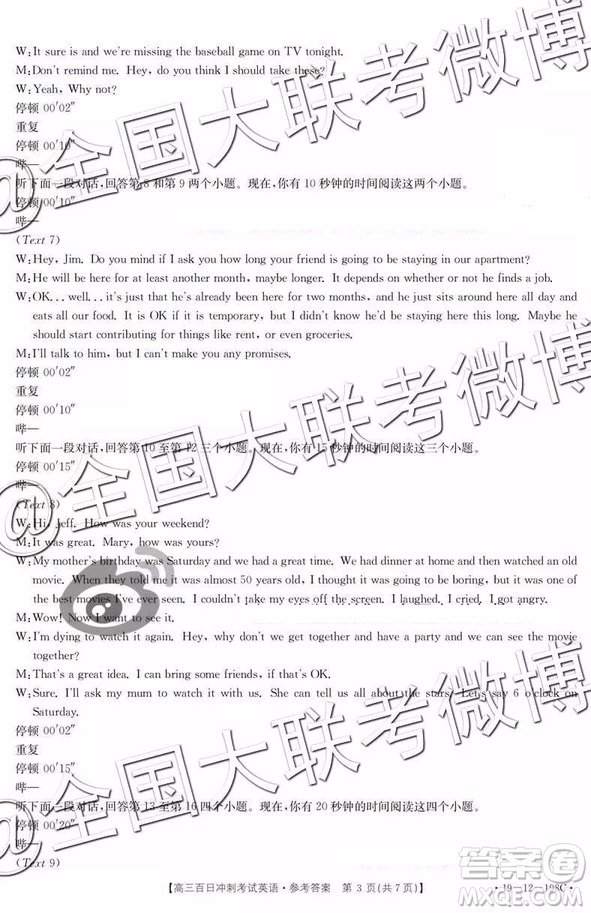 W:It sure is and we're missing the baseball game on TV tonight.
M:Don't remind me. Hey, do you think I should take these?
W:Yeah, Why not?
停顿 00′02″
重复
停顿 00′10″
哔—
听下面一段对话，回答第 8 和第 9 两个小题。现在，你有 10 秒钟的时间阅读这两个小题。
停顿 00′10″
哔—
(Text 7)
W:Hey, Jim. Do you mind if I ask you how long your friend is going to be staying in our apartment?
M:He will be here for at least another month, maybe longer. It depends on whether or not he finds a job.
W:OK...well...it's just that he's already been here for two months, and he just sits around here all day and
eats all our food. It is OK if it is temporary, but I didn't know he'd be staying here this long. Maybe he
should start contributing for things like rent, or even groceries.
M:I'll talk to him, but I can't make you any promises.
停顿 00′02″
重复
停顿 00′10″
哔—
听下面一段对话，回答第 10 至第 12 三个小题。现在，你有 15 秒钟的时间阅读这三个小题。
停顿 00′15″
哔—
(Text 8)
W:Hi, Jeff. How was your weekend?
M:It was great. Mary, how was yours?
W:My mother's birthday was Saturday and we had a great time. We had dinner at home and then watched an old
movie. When they told me it was almost 50 years old, I thought it was going to be boring, but it was one of
the best movies I've ever seen. I couldn't take my eyes off the screen. I laughed. I cried. I got angry.
M:Wow! Now I want to see it.
W:I'm dying to watch it again. Hey, why don't we get together and have a party and we can see the movie
together?
M:That's a great idea. I can bring some friends, if that's OK.
W:Sure. I'll ask my mum to watch it with us. She can tell us all about the stars. Let's say 6 o'clock on
Saturday.
停顿 00′02″
重复
停顿 00′15″
哔—
听下面一段对话，回答第 13 至第 16 四个小题。现在，你有 20 秒钟的时间阅读这四个小题。
停顿 00′20″
哔—
(Text 9)
【高三百日冲刺考试英语·参考答案 第 3 页(共 7 页)】
·19-12-198C·
@全国大联考微博
@全国大联考微博
@全国大联考微博
答案圈